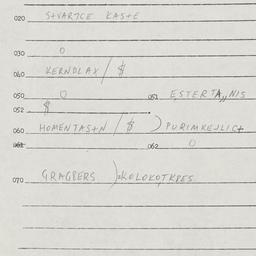 020 STVARTCE KASTE
030 O
040 KERNDLAX / $
050 O 051 ESTERTA,,NIS
052 $
060 HOMENTASTN / $ ) PURIMKEJLICT
061 062 O
070 GRAGBERS ) KOLOKOTKDES